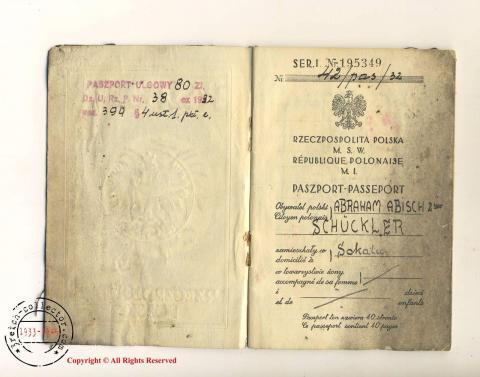 PASZPORT ULGOWY 80 Zł.
Dz. U. Rz. P. Nr. 38 ex 1932
poz. 394 § 4 ust. 1. pkt. c.
SER. I. № 195349
Nr 42/pas/32
RZECZPOSPOLITA POLSKA
M. S. W.
RÉPUBLIQUE POLONAISE
M. I.
PASZPORT-PASSEPORT
Obywatel polski ABRAHAM ABISCH
Citoyen polonais SCHÜCKLER
zamieszkały w
domicilié à
w towarzystwie żony
accompagné de sa femme
i dzieci
et de enfants
Paszport ten zawiera 40 stronic
Ce passeport contient 40 pages
3reich-collector.com
1933-1945
Copyright © All Rights Reserved